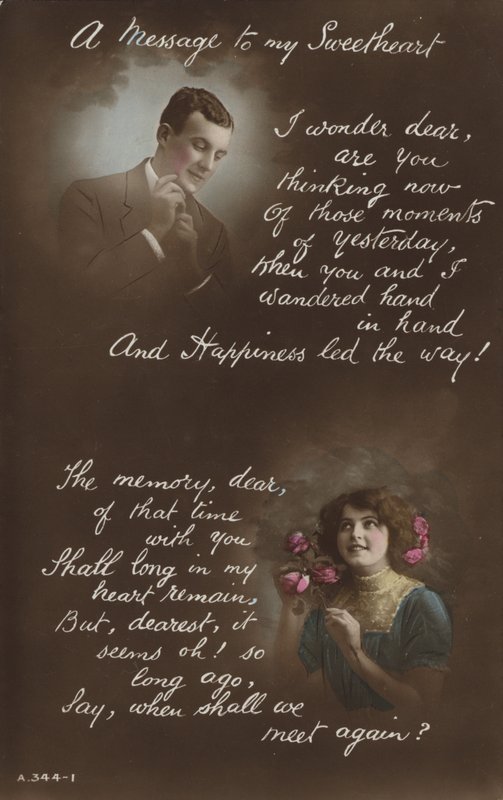 A Message to my Sweetheart
I wonder dear,
are you
thinking now
Of those moments
of yesterday,
When you and I
wandered hand
in hand
And Happiness led the way!
The memory, dear,
of that time
with you
Shall long in my
heart remain,
But, dearest, it
seems oh! so
long ago,
Say, when shall we
meet again?
A.344-1